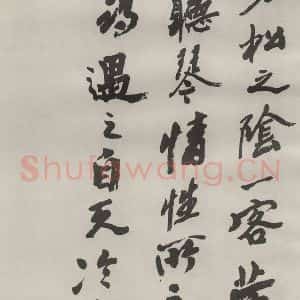 松之陰一客
聽琴情性所
遇之自天泠
Shufawang.CN